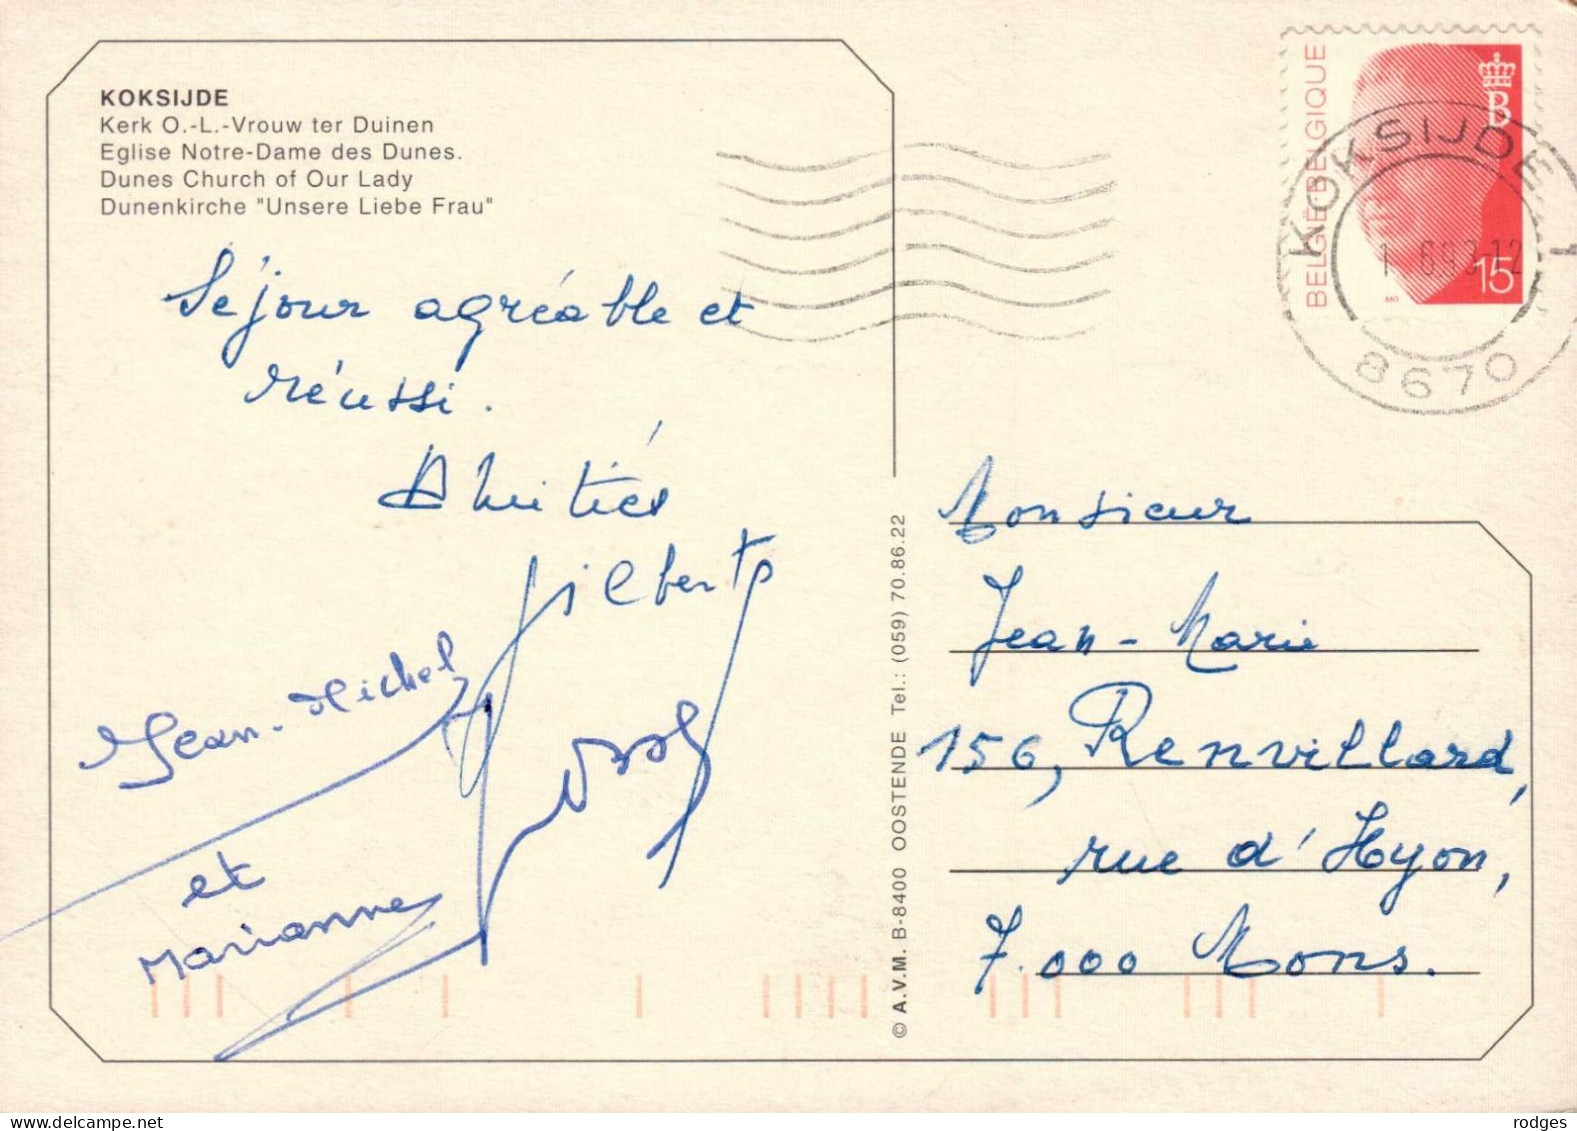 KOKSIJDE
Kerk O.-L.-Vrouw ter Duinen
Eglise Notre-Dame des Dunes.
Dunes Church of Our Lady
Dunenkirche "Unsere Liebe Frau"
Séjour agréable et
réussi.
Amitiés
Gilberte
Jean-Michel
et
Marianne
© A.V.M. B-8400 OOSTENDE Tel.: (059) 70.86.22
BELGIË-BELGIQUE
B
15
MO
KOKSIJDE 1
8670
Monsieur
Jean-Marie
156, Renvillard,
rue d'Hyon,
7.000 Mons.
rodges